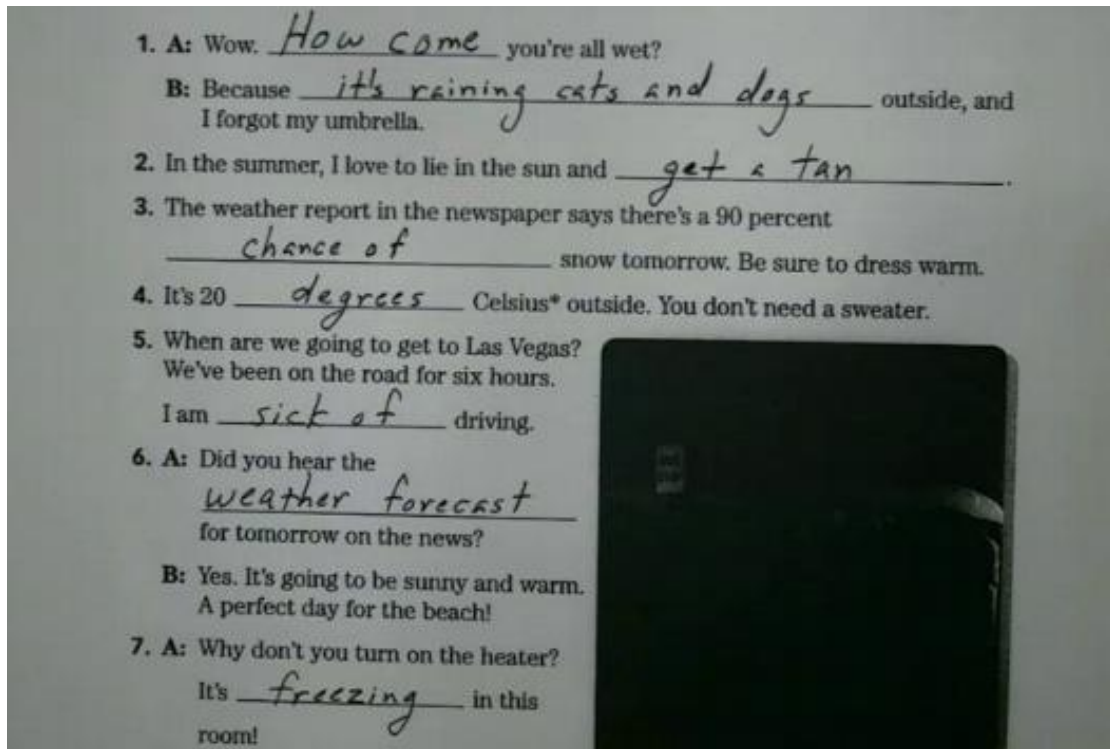 1. A: Wow. How come you're all wet?
B: Because it's raining cats and dogs outside, and
I forgot my umbrella.
2. In the summer, I love to lie in the sun and get a tan.
3. The weather report in the newspaper says there's a 90 percent
chance of snow tomorrow. Be sure to dress warm.
4. It's 20 degrees Celsius* outside. You don't need a sweater.
5. When are we going to get to Las Vegas?
We've been on the road for six hours.
I am sick of driving.
6. A: Did you hear the
weather forecast
for tomorrow on the news?
B: Yes. It's going to be sunny and warm.
A perfect day for the beach!
7. A: Why don't you turn on the heater?
It's freezing in this
room!